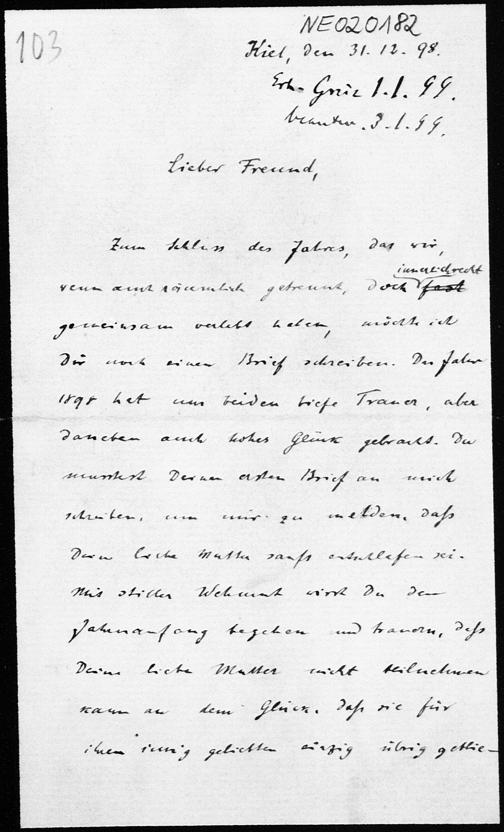 103
NE020182
Kiel, den 31.12.98.
Erh. Graz 1.1.99.
beantw. 3.1.99.
Lieber Freund,
Zum Schluss des Jahres, das wir,
innerlich recht
wenn auch räumlich getrennt, doch fast
gemeinsam verlebt haben, möchte ich
Dir noch einen Brief schreiben. Das Jahr
1898 hat uns beiden tiefe Trauer, aber
daneben auch hohes Glück gebracht. Du
musstest Deinen ersten Brief an mich
schreiben, um mir zu melden, daß
Deine liebe Mutter sanft entschlafen sei.
Mit stiller Wehmut wirst Du den
Jahresanfang begehen und trauern, daß
Deine liebe Mutter nicht teilnehmen
kann an dem Glück, daß sie für
ihren innig geliebten einzig übrig geblie-